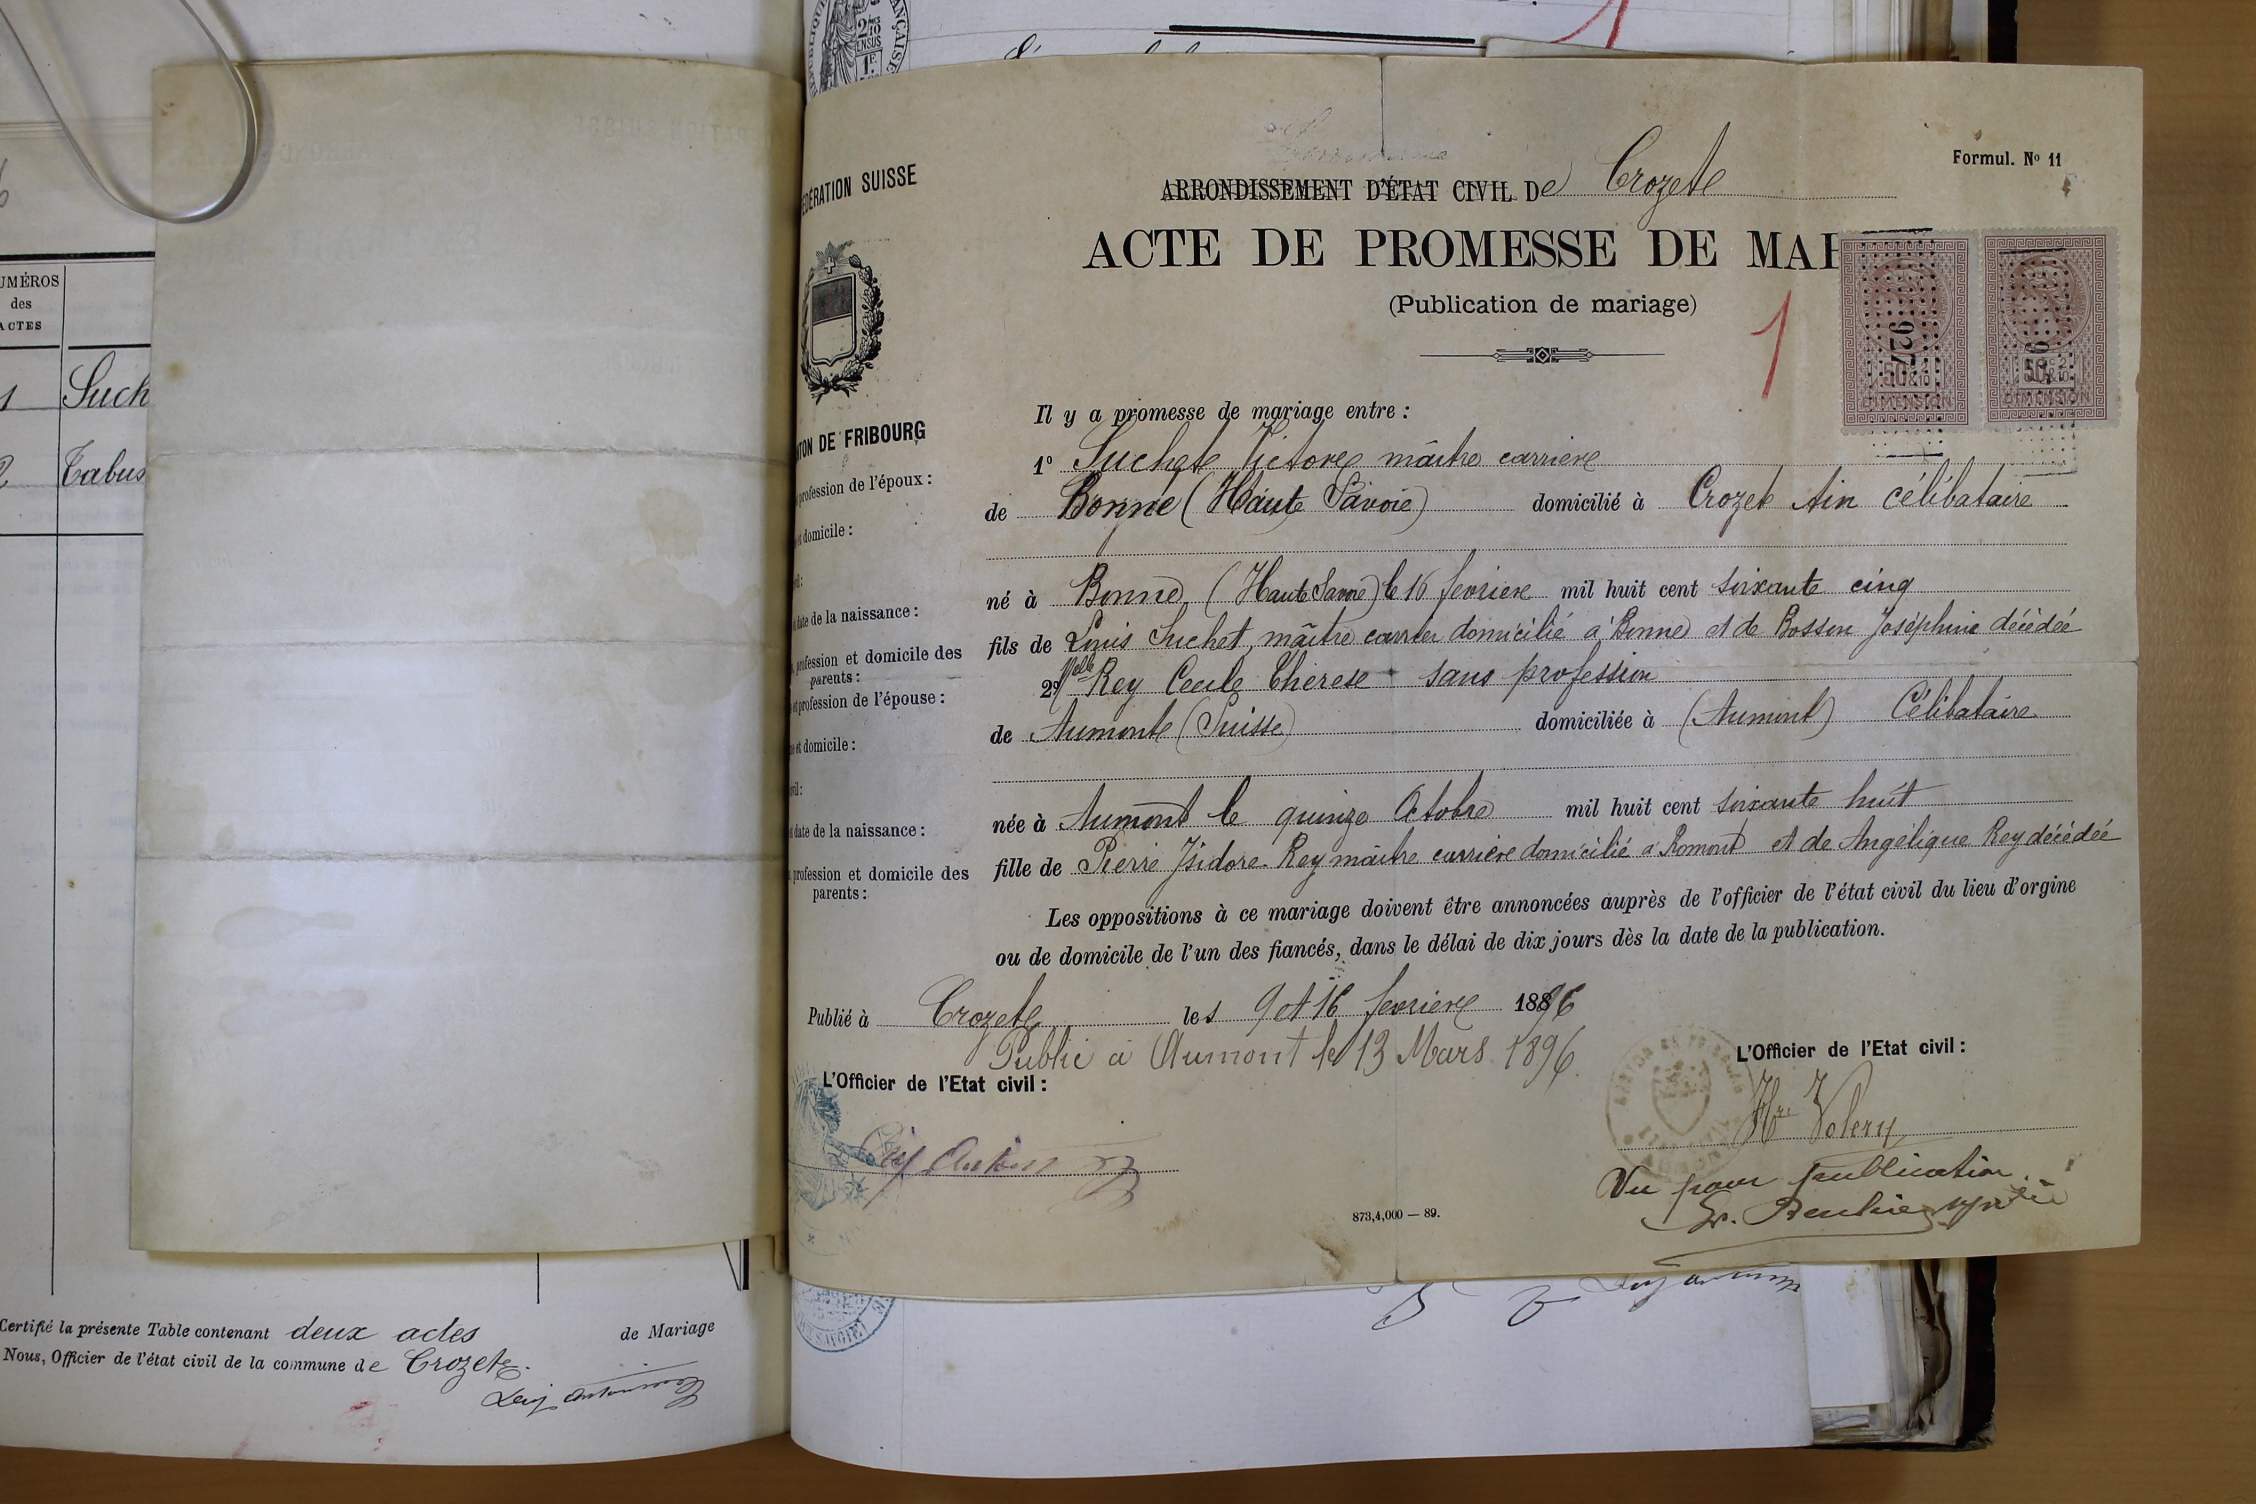 NUMÉROS
des
ACTES
1 Such
2 Tabus
Certifié la présente Table contenant deux actes de Mariage
Nous, Officier de l'état civil de la commune de Crozet
FÉDÉRATION SUISSE
CANTON DE FRIBOURG
Formul. Nº 11
ARRONDISSEMENT D'ÉTAT CIVIL De Crozet
ACTE DE PROMESSE DE MAR
(Publication de mariage)
1
937
50 c 2/10
DIMENSION
50 c 2/10
DIMENSION
Il y a promesse de mariage entre :
profession de l'époux :
1º Suchet Victore maître carriere
et domicile :
de Bonne (Haute Savoie) domicilié à Crozet Ain célibataire
date de la naissance :
né à Bonne (Haute Savoie) le 16 fevriere mil huit cent soixante cinq
profession et domicile des
parents :
fils de Louis Suchet, maître carrier domicilié à Bonne et de Bosson Joséphine décédée
et profession de l'épouse :
2º Melle Rey Cecile Therese sans profession
et domicile :
de Aumont (Suisse) domiciliée à (Aumont) Célibataire
date de la naissance :
née à Aumont le quinze Octobre mil huit cent soixante huit
profession et domicile des
parents :
fille de Pierre Isidore Rey maître carrière domicilié à Romont et de Angélique Rey décédée
Les oppositions à ce mariage doivent être annoncées auprès de l'officier de l'état civil du lieu d'orgine
ou de domicile de l'un des fiancés, dans le délai de dix jours dès la date de la publication.
Publié à Crozet les 9 et 16 fevriere 1896
Publié à Aumont le 13 Mars 1896.
L'Officier de l'Etat civil :
L'Officier de l'Etat civil :
Volery
Vu pour publication
873,4,000 — 89.